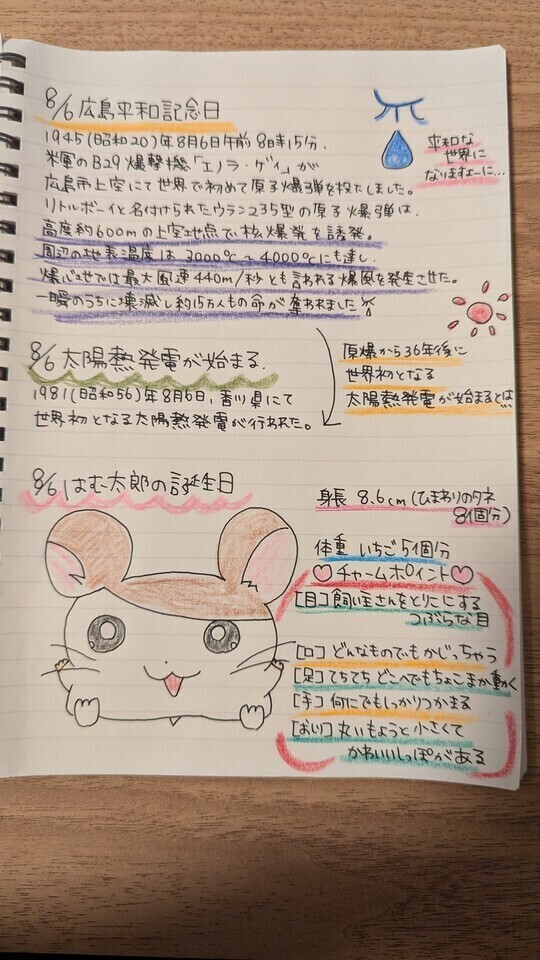 8/6 広島平和記念日
1945(昭和20)年8月6日午前8時15分、
米軍のB29爆撃機「エノラ・ゲイ」が
広島市上空にて世界で初めて原子爆弾を投下しました。
リトルボーイと名付けられたウラン235型の原子爆弾は、
高度約600mの上空地点で核爆発を誘発。
周辺の地表温度は3000℃~4000℃にも達し、
爆心地では最大風速440m/秒とも言われる爆風を発生させた。
一瞬のうちに壊滅し約15万人もの命が奪われました
平和な
世界に
なりますよーに…
8/6 太陽熱発電が始まる.
1981(昭和56)年8月6日、香川県にて
世界初となる太陽熱発電が行われた。
原爆から36年後に
世界初となる
太陽熱発電が始まるとは
8/6 はむ太郎の誕生日
身長 8.6cm(ひまわりのタネ
8個分)
体重 いちご5個分
♡チャームポイント♡
[目]飼い主さんをとりこにする
つぶらな目
[口]どんなものでもかじっちゃう
[足]てちてちどこへでもちょこまか動く
[手]何にでもしっかりつかまる
[おしり]丸いもようと小さくて
かわいいしっぽがある